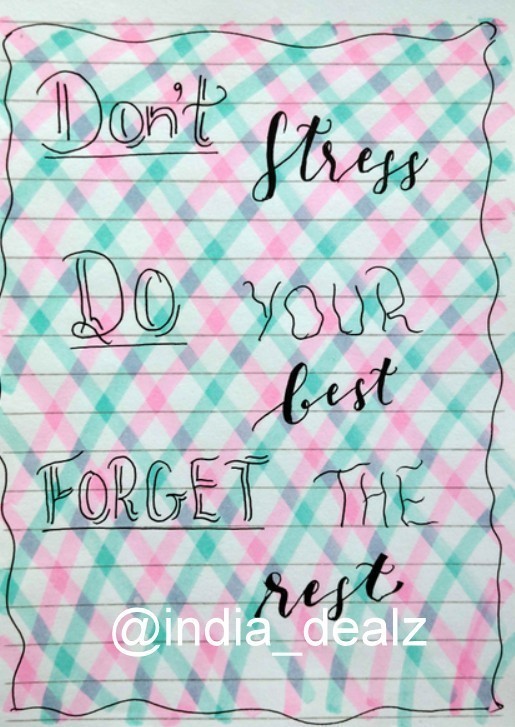 Don't
Stress
Do YOUR
best
FORGET THE
rest
@india_dealz